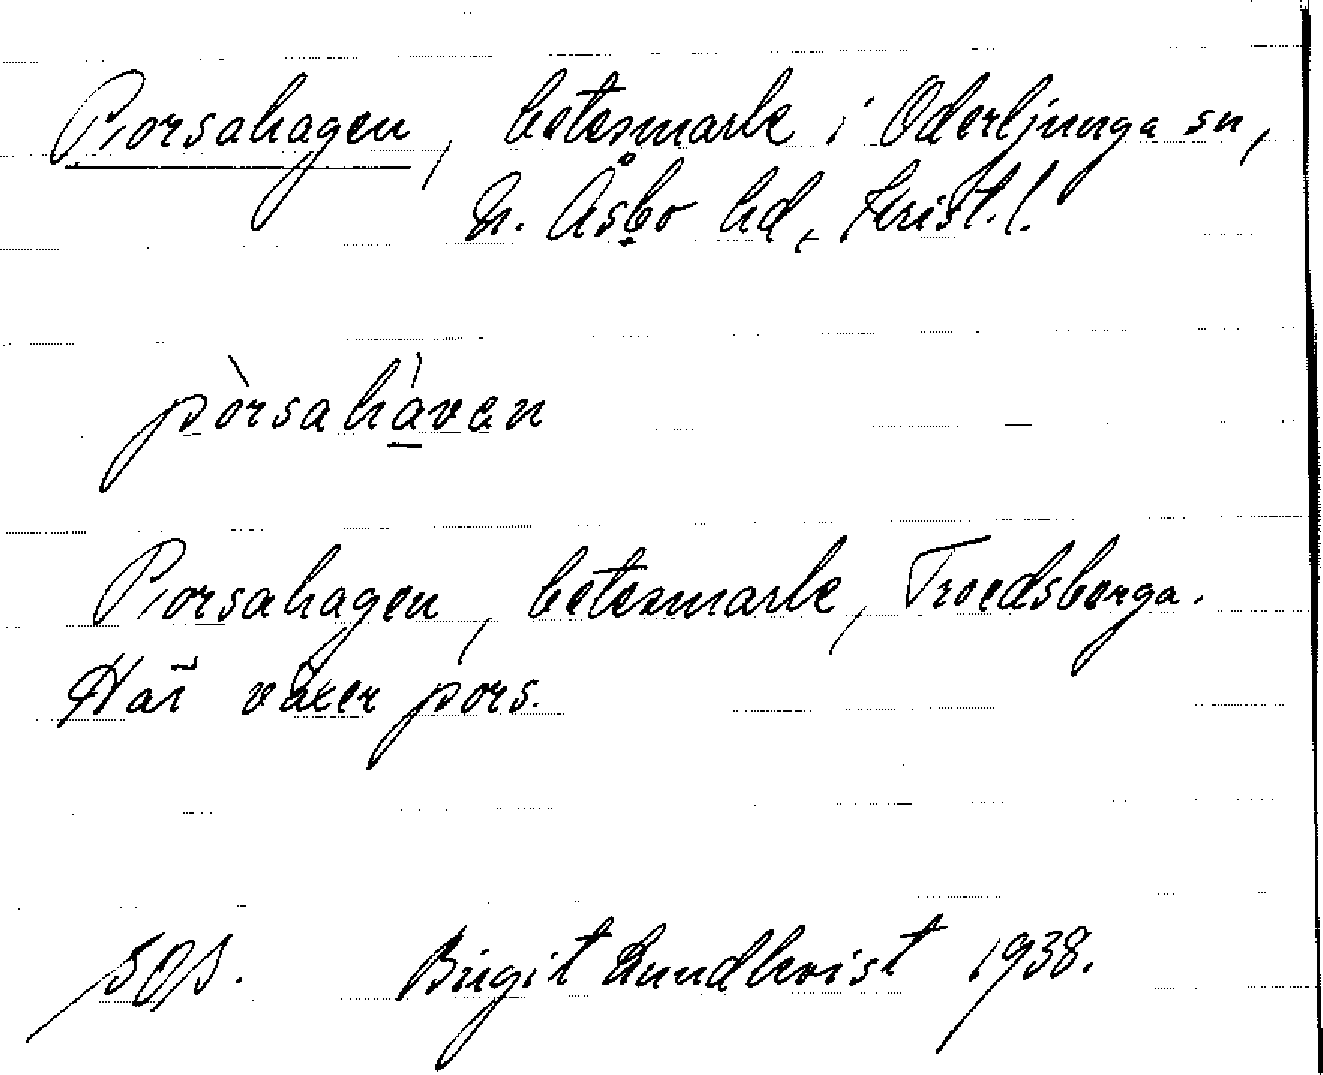 Porsahagen, betesmark i Oderljunga sn,
N. Åsbo hd, Krist. l.
pòrsahàven
Porsahagen, betesmark, Troedsberga.
Här växer pors.
Birgit Lundkvist 1938.